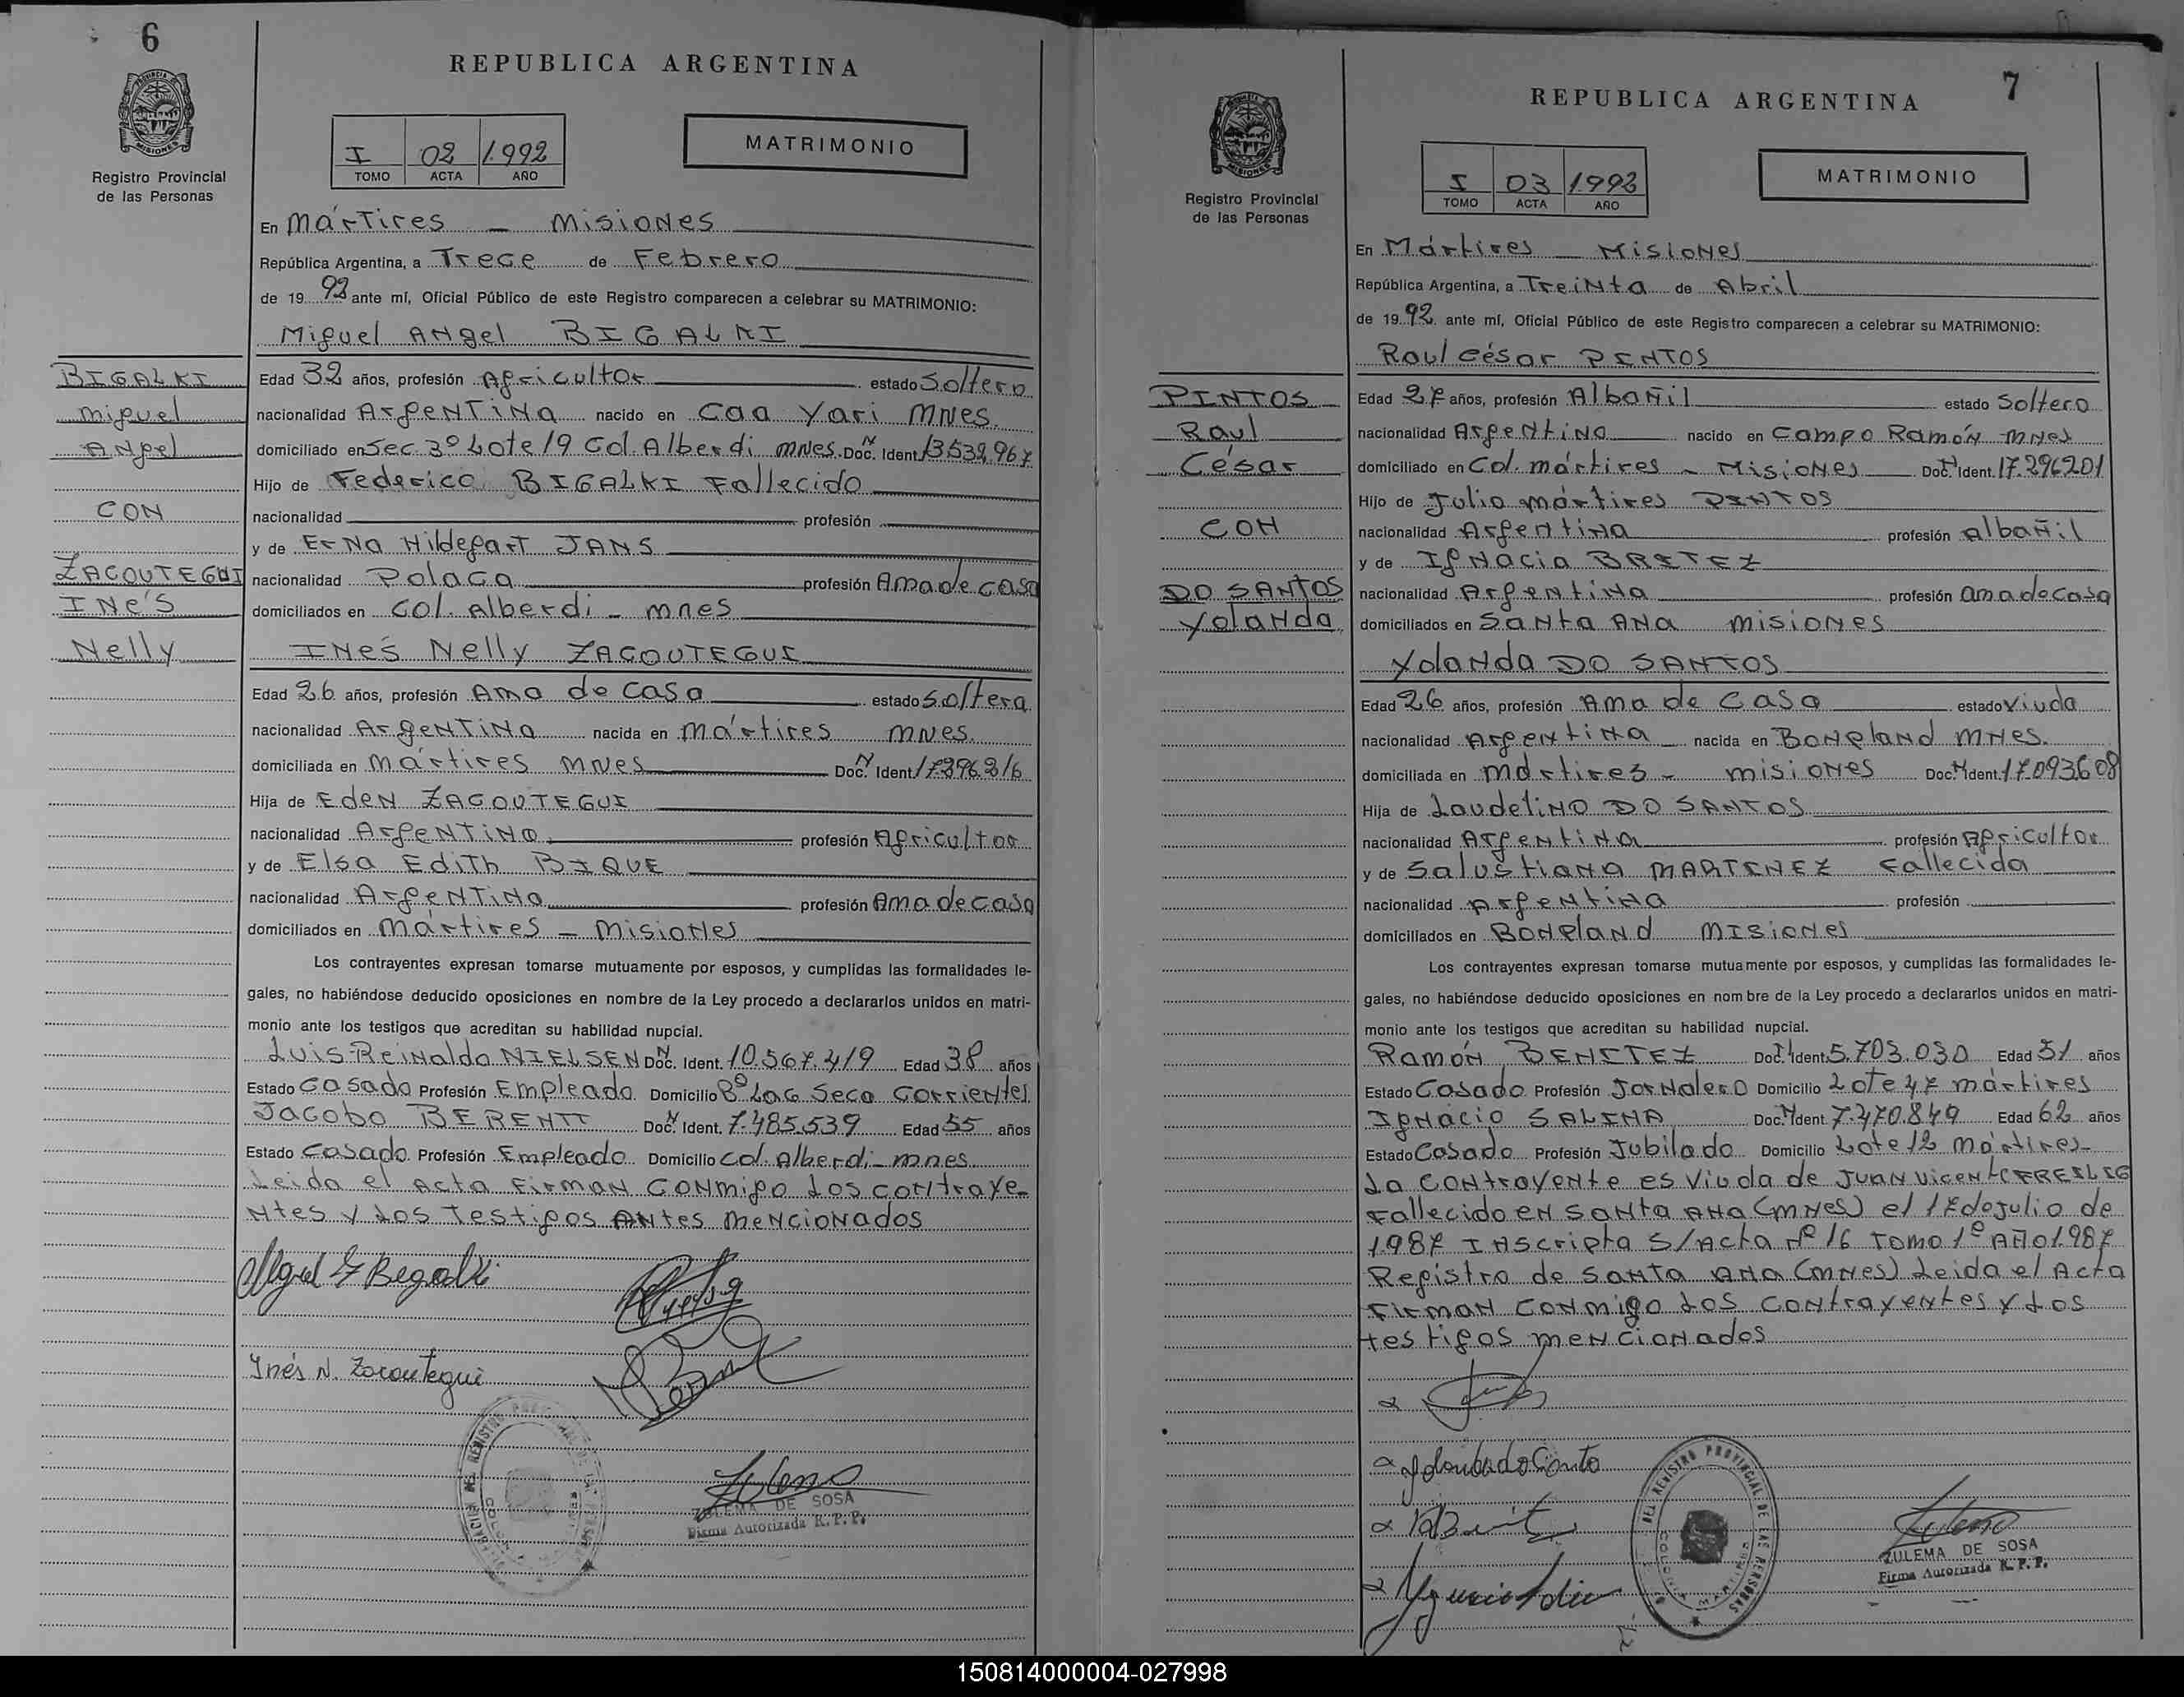 6
REPUBLICA ARGENTINA
PROVINCIA DE
MISIONES
Registro Provincial
de las Personas
I 02 1.992
TOMO ACTA AÑO
MATRIMONIO
En Mártires - Misiones
República Argentina, a Trece de Febrero
de 19 92 ante mí, Oficial Público de este Registro comparecen a celebrar su MATRIMONIO:
Miguel Angel BIGALKI
BIGALKI
Miguel
Angel
CON
ZACOUTEGUI
INés
Nelly
Edad 32 años, profesión Agricultor estado Soltero
nacionalidad Argentina nacido en Caa Yari Mnes.
domiciliado en Sec. 3º Lote 19 Col. Alberdi mnes. Doc. N Ident 13.539.967
Hijo de Federico BIGALKI Fallecido
nacionalidad profesión
y de Erna Hildegart JANS
nacionalidad Polaca profesión Ama de casa
domiciliados en Col. Alberdi - mnes
INés Nelly ZACOUTEGUI
Edad 26 años, profesión Ama de casa estado soltera
nacionalidad Argentina nacida en Mártires mnes.
domiciliada en Mártires mnes Doc. N Ident 17.296.216
Hija de Eden ZACOUTEGUI
nacionalidad Argentina profesión Agricultor
y de Elsa Edith BIQUE
nacionalidad Argentina profesión Ama de casa
domiciliados en Mártires - Misiones
Los contrayentes expresan tomarse mutuamente por esposos, y cumplidas las formalidades le-
gales, no habiéndose deducido oposiciones en nombre de la Ley procedo a declararlos unidos en matri-
monio ante los testigos que acreditan su habilidad nupcial.
Luis Reinaldo NIELSEN Doc. N Ident. 10.567.419 Edad 38 años
Estado Casado Profesión Empleado Domicilio Bº Lag Seca Corrientes
Jacobo BERENTT Doc. N Ident. 7.485.539 Edad 55 años
Estado Casado Profesión Empleado Domicilio Col. Alberdi - mnes.
Leida el Acta Firman conmigo Los contraye-
ntes y Los Testigos Antes mencionados
Inés N. Zacoutegui
ZULEMA DE SOSA
Firma Autorizada R. P. P.
7
REPUBLICA ARGENTINA
MISIONES
Registro Provincial
de las Personas
I 03 1.992
TOMO ACTA AÑO
MATRIMONIO
En Mártires - Misiones
República Argentina, a Treinta de Abril
de 19 92 ante mí, Oficial Público de este Registro comparecen a celebrar su MATRIMONIO:
Raul César PINTOS
PINTOS
Raul
César
CON
DO SANTOS
Yolanda
Edad 27 años, profesión Albañil estado Soltero
nacionalidad Argentino nacido en Campo Ramón Mnes
domiciliado en Col. Mártires - Misiones Doc. N Ident. 17.296201
Hijo de Julio Mártires PINTOS
nacionalidad Argentina profesión Albañil
y de Ignacia BRITEZ
nacionalidad Argentina profesión ama de casa
domiciliados en Santa Ana Misiones
Yolanda DO SANTOS
Edad 26 años, profesión Ama de Casa estado Viuda
nacionalidad Argentina nacida en Bonpland Mnes.
domiciliada en Mártires - misiones Doc. N Ident. 17.093.608
Hija de Laudelino DO SANTOS
nacionalidad Argentina profesión Agricultor
y de Salustiana MARTINEZ Fallecida
nacionalidad Argentina profesión
domiciliados en Bonpland Misiones
Los contrayentes expresan tomarse mutuamente por esposos, y cumplidas las formalidades le-
gales, no habiéndose deducido oposiciones en nombre de la Ley procedo a declararlos unidos en matri-
monio ante los testigos que acreditan su habilidad nupcial.
Ramón BENITEZ Doc. N Ident. 5.703.030 Edad 51 años
Estado Casado Profesión Jornalero Domicilio Lote 47 Mártires
Ignacio SALINA Doc. N Ident. 7.470.849 Edad 62 años
Estado Casado Profesión Jubilado Domicilio Lote 12 Mártires-
La contrayente es Viuda de Juan Vicente
Fallecido en Santa Ana (mnes) el 17 de Julio de
1987 Inscripta S/Acta Nº 16 Tomo 1º Año 1987
Registro de Santa Ana (mnes) Leida el Acta
Firman conmigo Los contrayentes y Los
testigos mencionados
DEL REGISTRO PROVINCIAL DE LAS PERSONAS
ZULEMA DE SOSA
Firma Autorizada R. P. P.
150814000004-027998